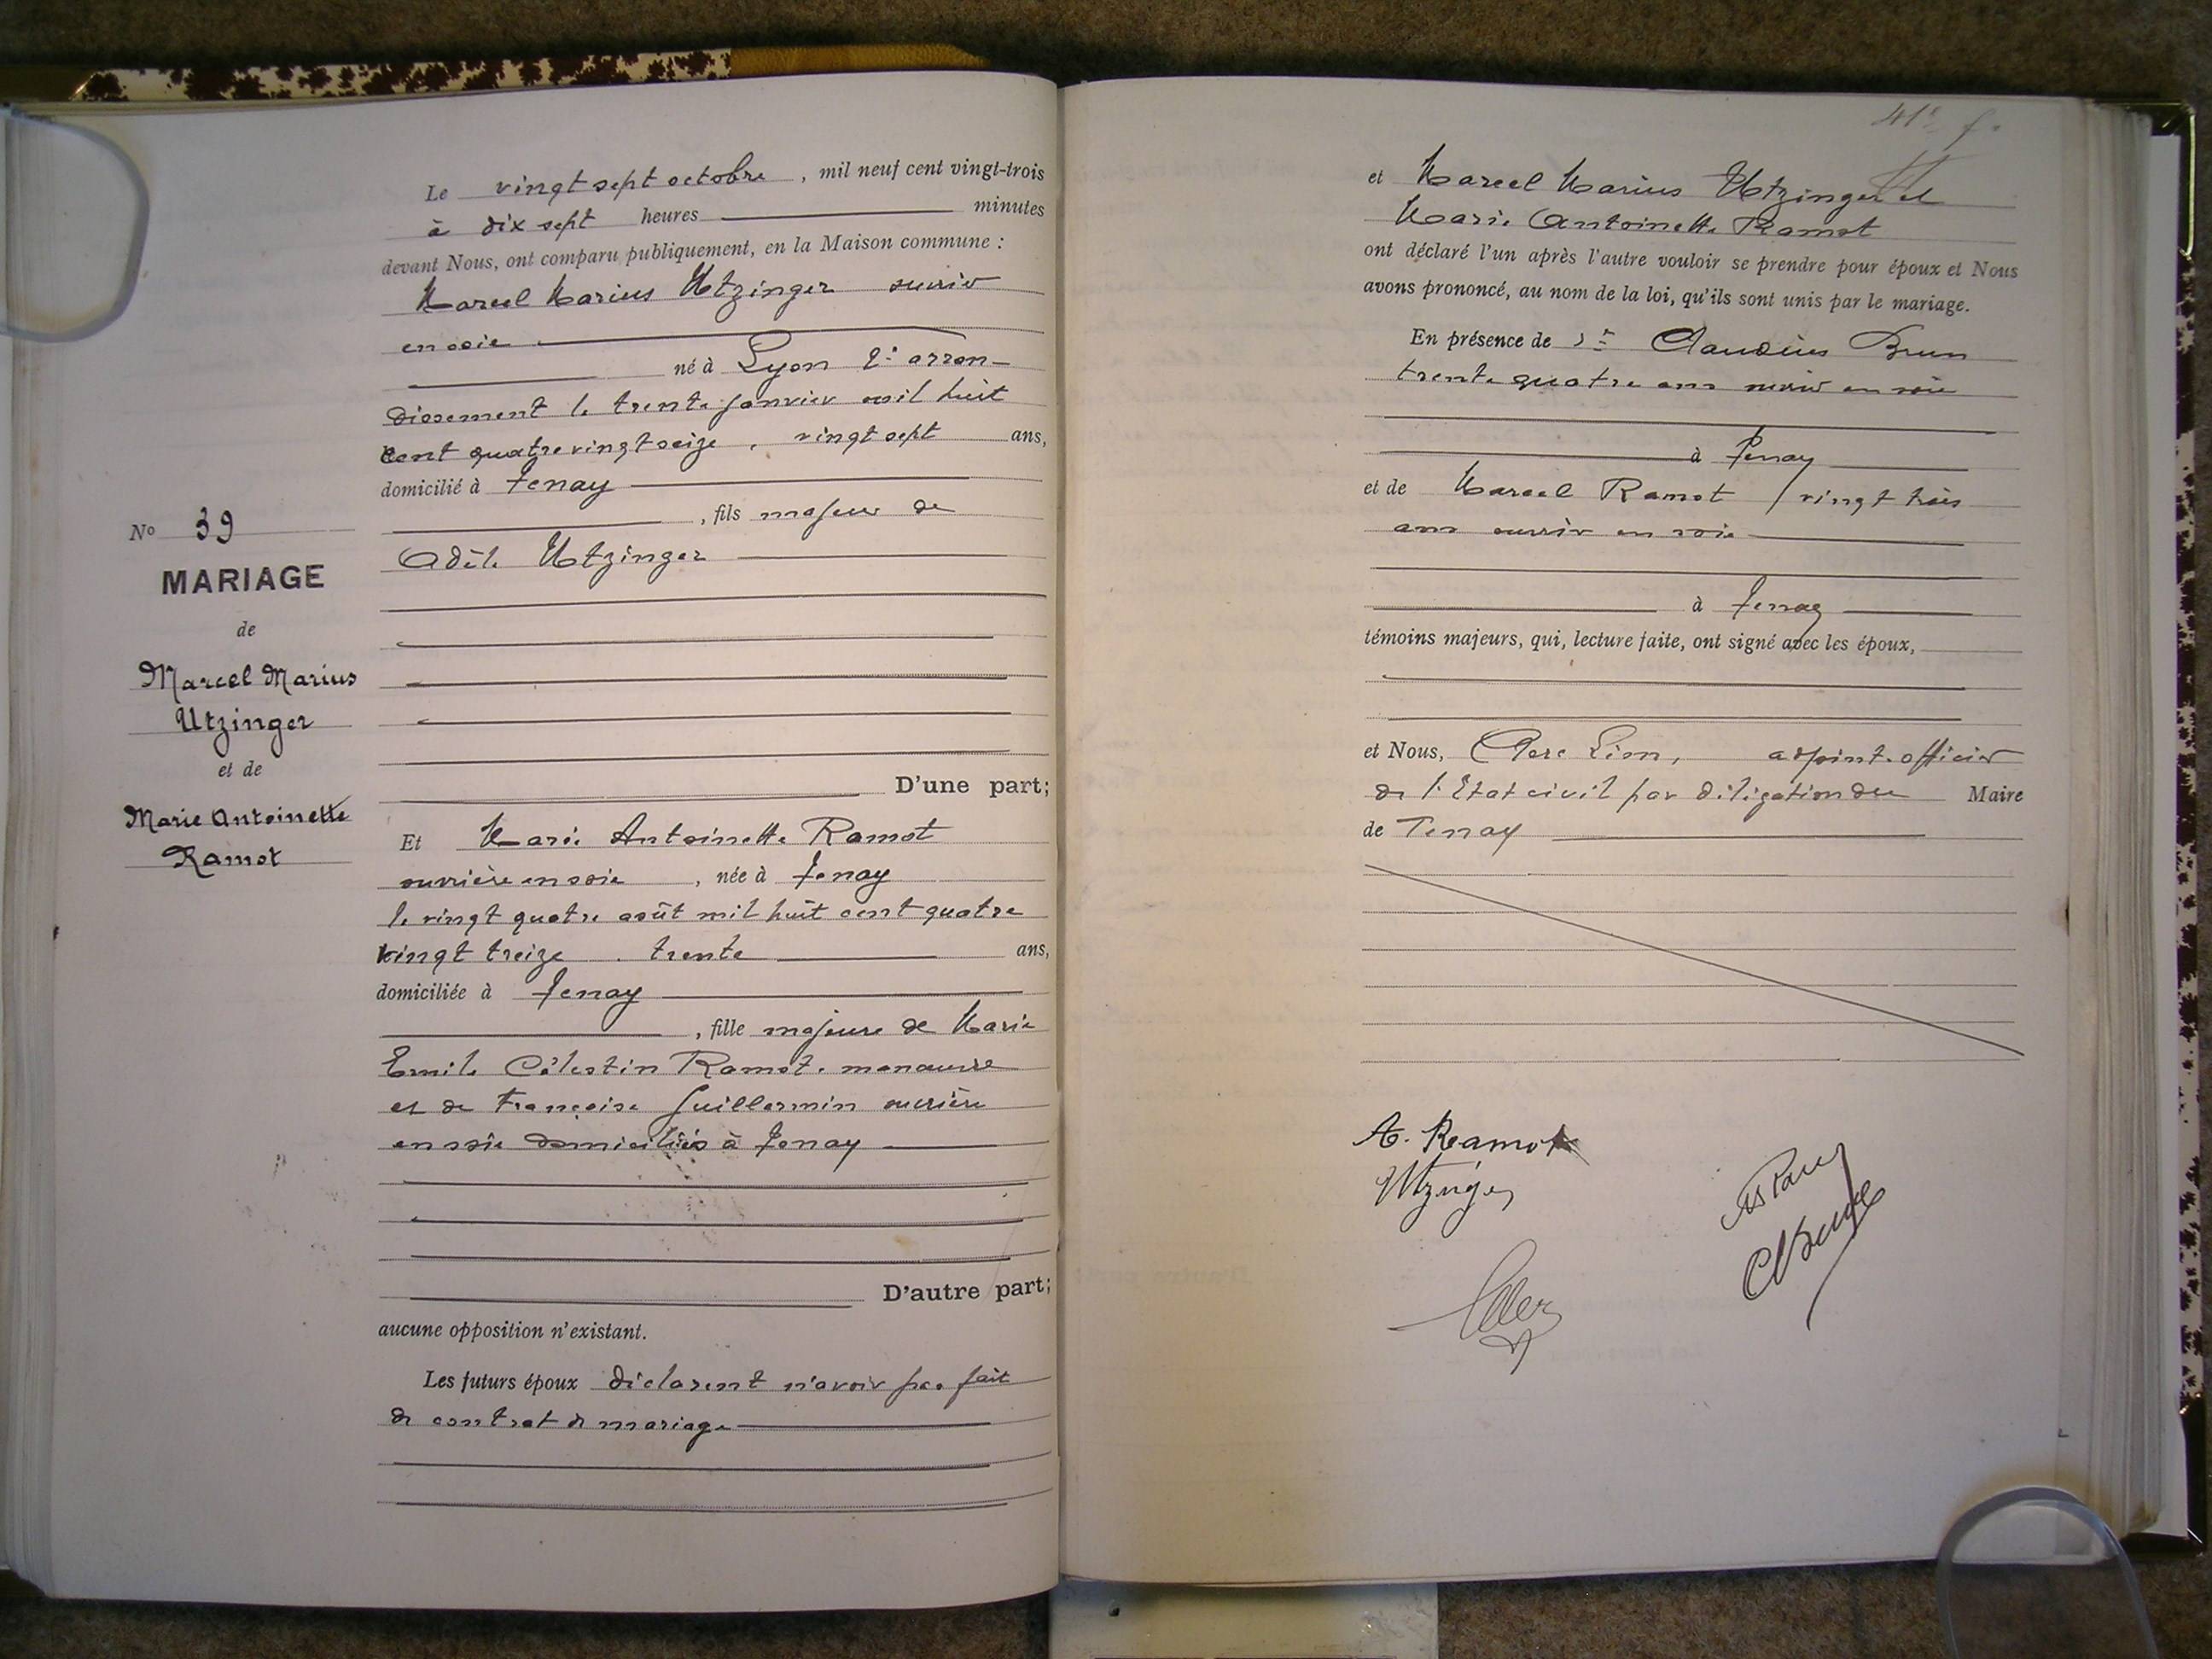 Le vingt sept octobre, mil neuf cent vingt-trois
à dix sept heures minutes
devant Nous, ont comparu publiquement, en la Maison commune :
Marcel Marius Utzinger ouvrier
en soie
né à Lyon 2e arron-
dissement le trente janvier mil huit
cent quatre vingt seize, vingt sept ans,
domicilié à Tenay
, fils majeur de
Adèle Utzinger
D'une part;
Et Marie Antoinette Ramot
ouvrière en soie, née à Tenay
le vingt quatre août mil huit cent quatre
vingt treize. trente ans,
domiciliée à Tenay
, fille majeure de Marie
Emile Célestin Ramot. manœuvre
et de Françoise Guillermin ouvrière
en soie domiciliés à Tenay
D'autre part;
aucune opposition n'existant.
Les futurs époux déclarent n'avoir pas fait
de contrat de mariage
No 39
MARIAGE
de
Marcel Marius
Utzinger
et de
Marie Antoinette
Ramot
41e f.
et Marcel Marius Utzinger et
Marie Antoinette Ramot
ont déclaré l'un après l'autre vouloir se prendre pour époux et Nous
avons prononcé, au nom de la loi, qu'ils sont unis par le mariage.
En présence de Claudius Brun
trente quatre ans ouvrier en soie
à Tenay
et de Marcel Ramot vingt trois
ans ouvrier en soie
à Tenay
témoins majeurs, qui, lecture faite, ont signé avec les époux,
et Nous, Clerc Léon, adjoint. officier
de l'Etat civil par délégation du Maire
de Tenay
A. Ramot
Utzinger